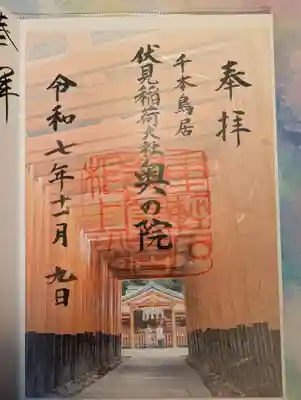 奉拝
千本鳥居
伏見稲荷大社
奥の院
令和七年十一月九日
奉拝